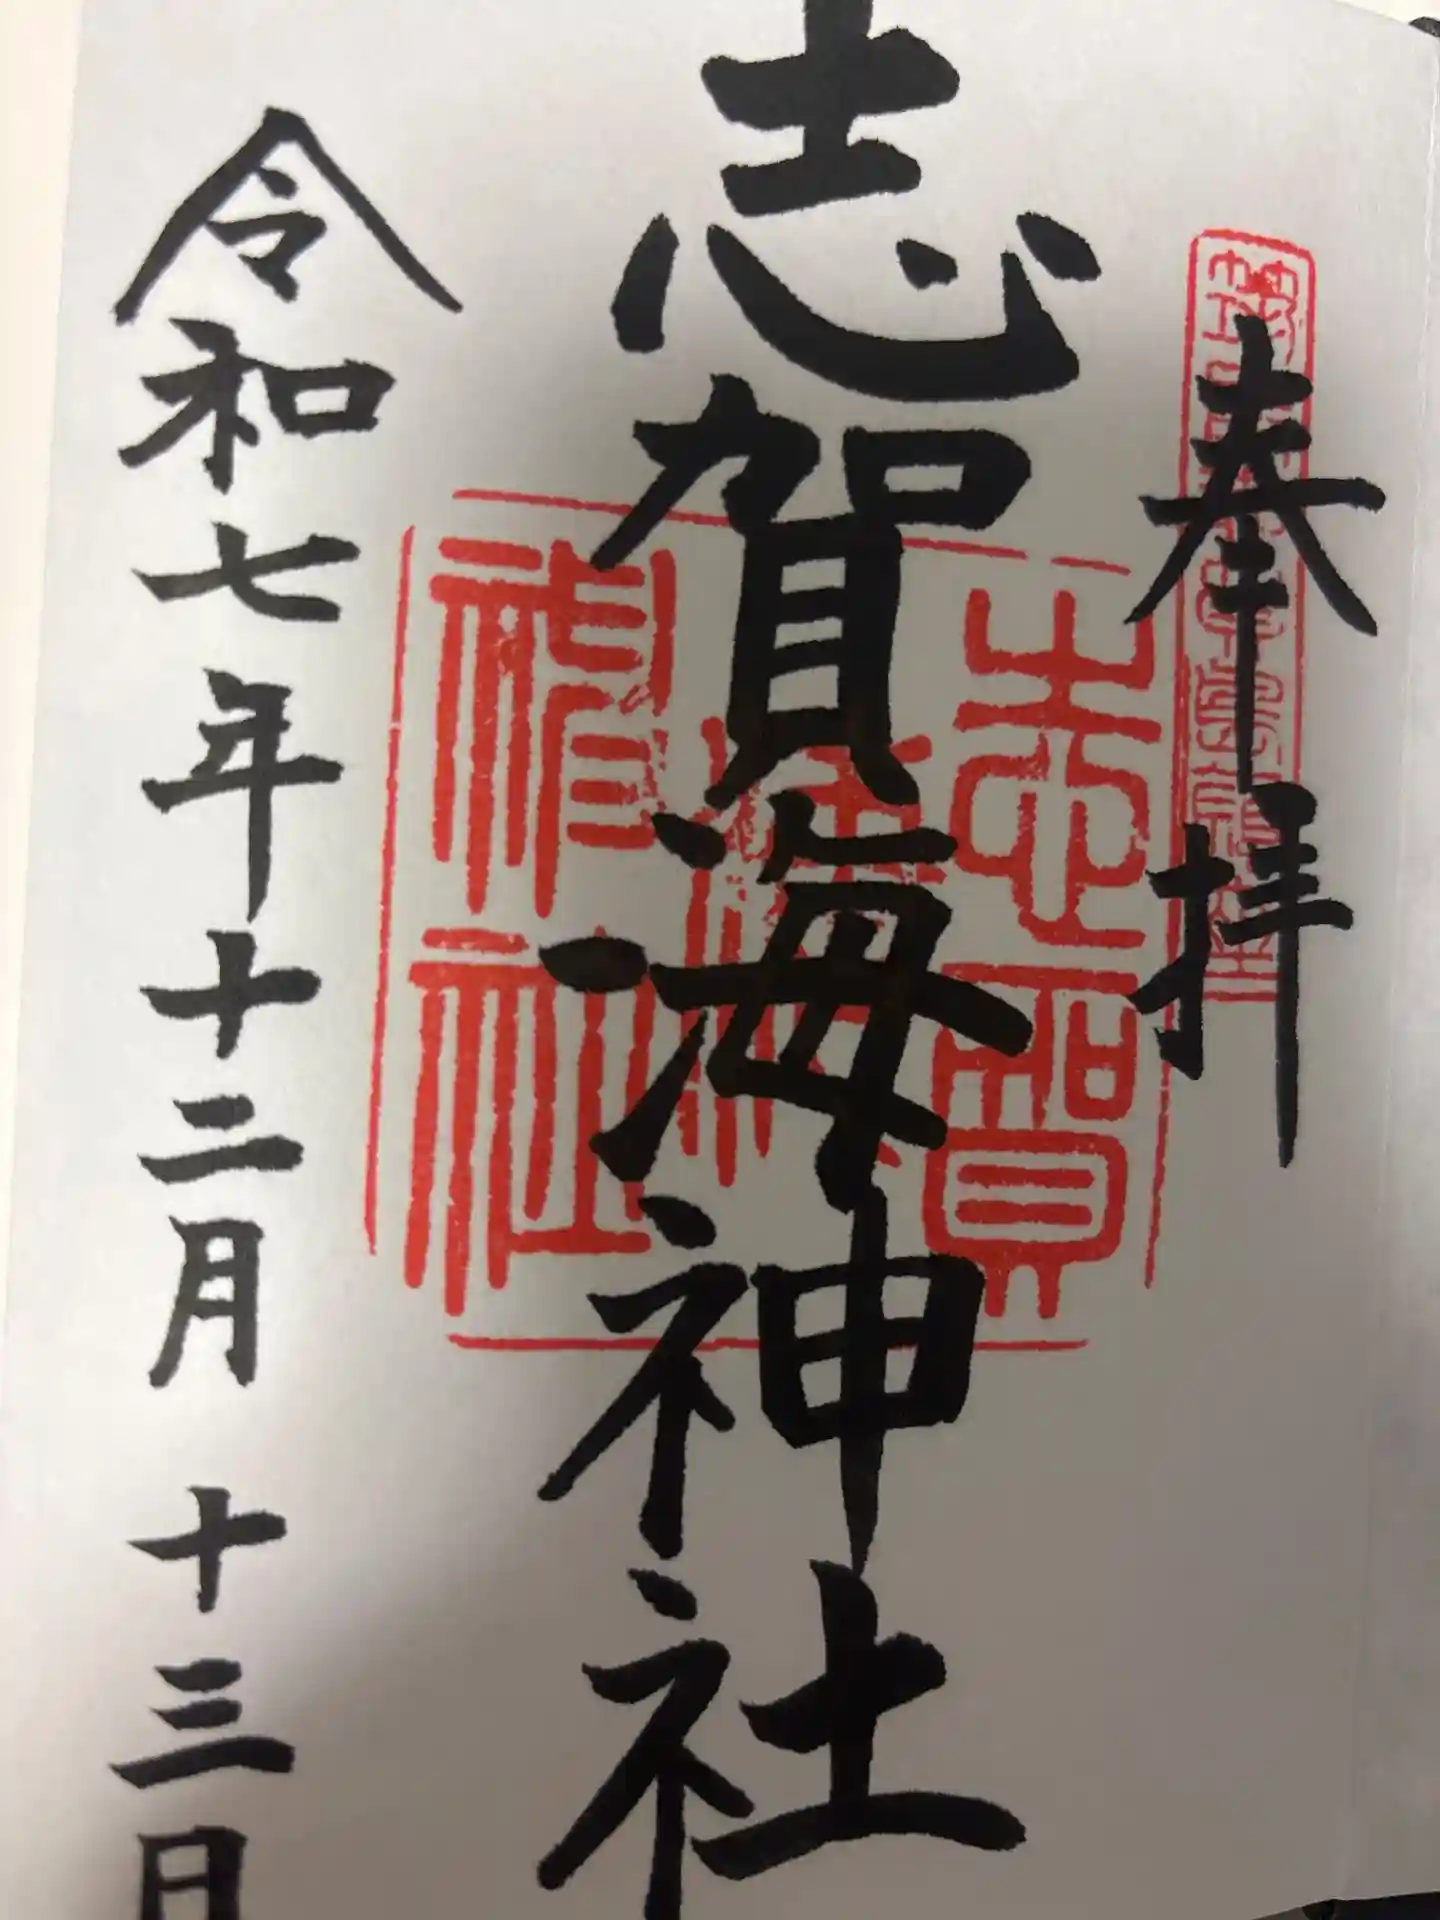 奉拝
志賀海神社
令和七年十二月十三日
志賀
海神社